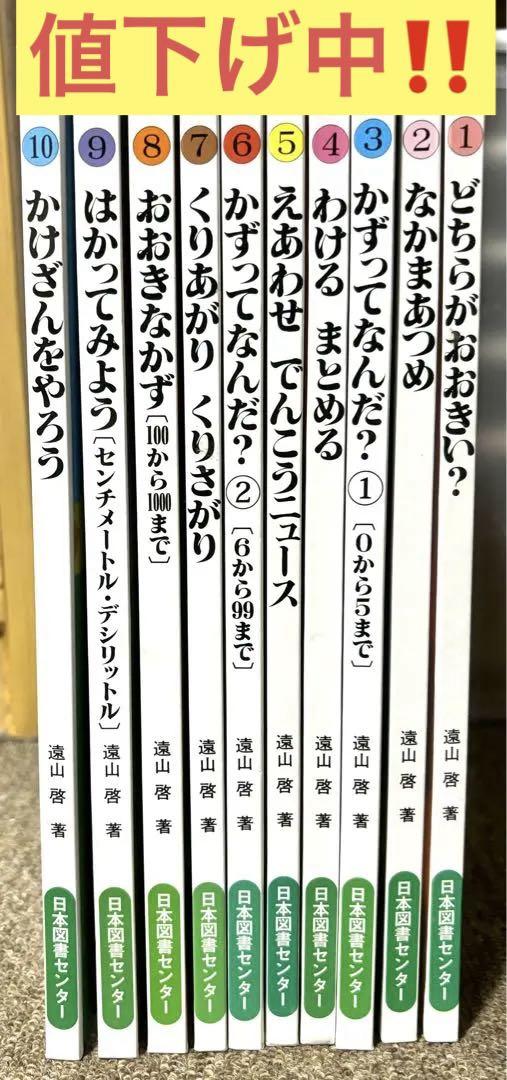 値下げ中‼️
1
どちらがおおきい？
遠山 啓 著
日本図書センター
2
なかまあつめ
遠山 啓 著
日本図書センター
3
かずってなんだ？①〔0から5まで〕
遠山 啓 著
日本図書センター
4
わける まとめる
遠山 啓 著
日本図書センター
5
えあわせ でんこうニュース
遠山 啓 著
日本図書センター
6
かずってなんだ？②〔6から99まで〕
遠山 啓 著
日本図書センター
7
くりあがり くりさがり
遠山 啓 著
日本図書センター
8
おおきなかず〔100から1000まで〕
遠山 啓 著
日本図書センター
9
はかってみよう〔センチメートル・デシリットル〕
遠山 啓 著
日本図書センター
10
かけざんをやろう
遠山 啓 著
日本図書センター